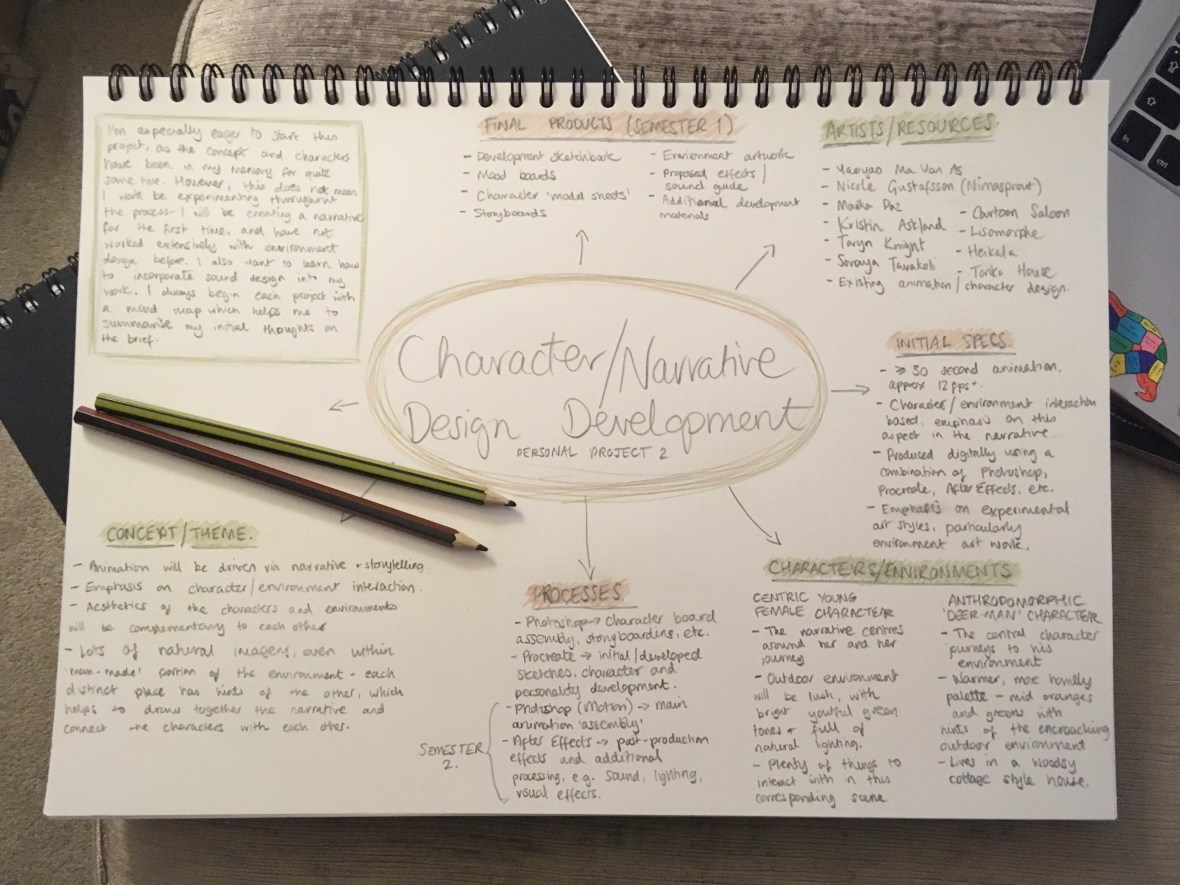 I'm especially eager to start this
project, as the concept and characters
have been in my memory for quite
some time. However, this does not mean
I won't be experimenting throughout
the process - I will be creating a narrative
for the first time, and have not
worked extensively with environment
design before. I also want to learn how
to incorporate sound design into my
work. I always begin each project with
a mind map which helps me to
summarise my initial thoughts on
the brief.
FINAL PRODUCTS (SEMESTER 1)
- Development sketchbook
- Mood boards
- Character 'model sheets'
- Storyboards
- Environment artwork
- Proposed effects/
sound guide
- Additional development
materials
ARTISTS/RESOURCES
- Yaoyao Ma Van As
- Nicole Gustafsson (Nimasprout)
- Maika Daz
- Kristin Askland
- Taryn Knight
- Soraya Tavakoli
- Existing animation/character design
- Cartoon Saloon
- Lisomorphe
- Heikala
- Tonko House
Character/Narrative
Design Development
PERSONAL PROJECT 2
INITIAL SPECS
- ≥ 30 second animation,
approx 12 fps+.
- Character/environment interaction
based, emphasis on this
aspect in the narrative.
- Produced digitally using a
combination of Photoshop,
Procreate, After Effects, etc.
- Emphasis on experimental
art styles, particularly
environment art work.
CONCEPT/THEME.
- Animation will be driven via narrative + storytelling
- Emphasis on character/environment interaction.
- Aesthetics of the characters and environments
will be complementary to each other
- Lots of natural imagery, even within
'man-made' portion of the environment - each
distinct place has hints of the other, which
helps to draw together the narrative and
connect the characters with each other.
PROCESSES
- Photoshop → Character board
assembly, storyboarding, etc.
- Procreate → initial/developed
sketches, character and
personality development.
- Photoshop (Motion) → main
animation 'assembly'
- After Effects → post-production
effects and additional
processing, e.g. sound, lighting,
visual effects.
SEMESTER
2.
CHARACTERS/ENVIRONMENTS
CENTRIC YOUNG
FEMALE CHARACTER
- The narrative centres
around her and her
journey
- Outdoor environment
will be lush, with
bright youthful green
tones + full of
natural lighting.
- Plenty of things to
interact with in this
corresponding scene
ANTHRODOMORPHIC
'DEER-MAN' CHARACTER
- The central character
journeys to his
environment
- Warmer, more homely
palette - mid oranges
and greens with
hints of the encroaching
outdoor environment
- Lives in a woodsy
cottage style house.
fn
ctrl